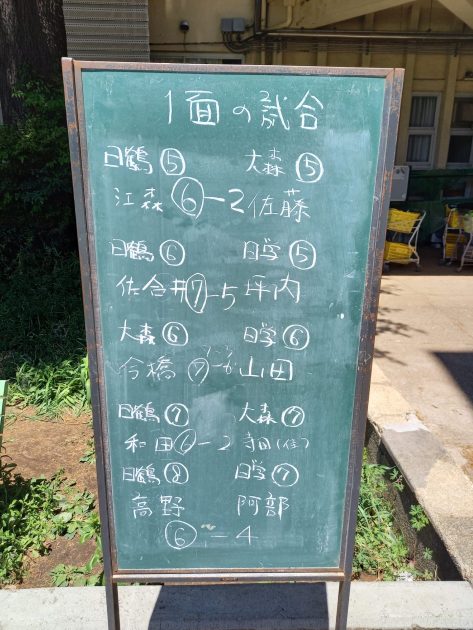 1面の試合
日鶴⑤ 大森⑤
江森 ⑥-2 佐藤
日鶴⑥ 日学⑤
佐合井 ⑦-5 坪内
大森⑥ 日学⑥
今橋 ⑦- 山田
日鶴⑦ 大森⑦
和田 ⑥-2 寺田
日鶴⑧ 日学⑦
高野 阿部
⑥-4